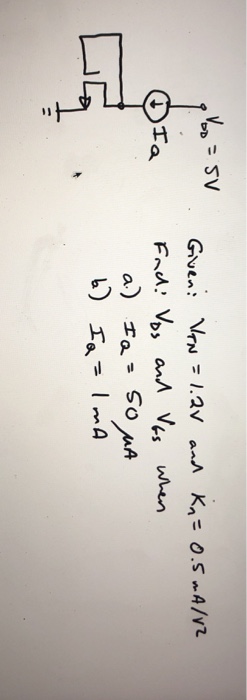 V_DD = 5V
I_Q
Given: V_TN = 1.2V and K_n = 0.5 mA/V²
Find: V_DS and V_GS when
a.) I_Q = 50 μA
b) I_Q = 1 mA